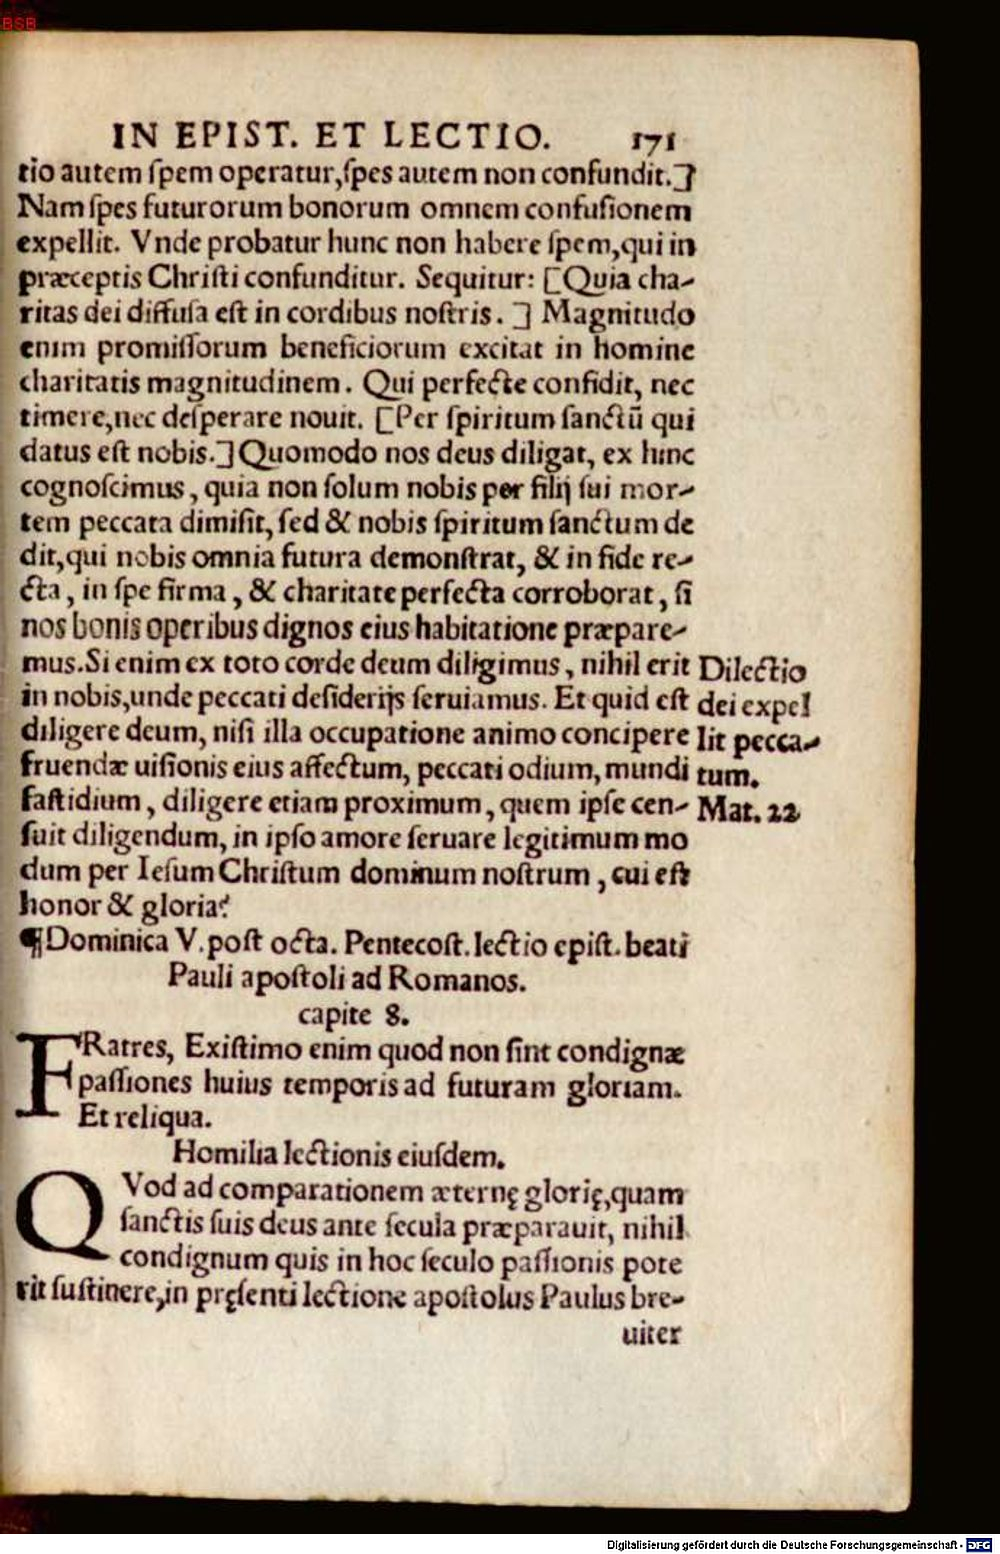 BSB
IN EPIST. ET LECTIO. 171
tio autem ſpem operatur,ſpes autem non confundit.]
Nam ſpes futurorum bonorum omnem confuſionem
expellit. Vnde probatur hunc non habere ſpem,qui in
præceptis Chriſti confunditur. Sequitur: [Quia cha-
ritas dei diffuſa eſt in cordibus noſtris. ] Magnitudo
enim promiſſorum beneficiorum excitat in homine
charitatis magnitudinem. Qui perfecte confidit, nec
timere,nec deſperare nouit. [Per ſpiritum ſanctū qui
datus eſt nobis.] Quomodo nos deus diligat, ex hinc
cognoſcimus, quia non ſolum nobis per filij ſui mor-
tem peccata dimiſit, ſed & nobis ſpiritum ſanctum de
dit,qui nobis omnia futura demonſtrat, & in fide re-
cta, in ſpe firma, & charitate perfecta corroborat, ſi
nos bonis operibus dignos eius habitatione præpare-
mus.Si enim ex toto corde deum diligimus, nihil erit
in nobis,unde peccati deſiderijs ſeruiamus. Et quid eſt
diligere deum, niſi illa occupatione animo concipere
fruendæ uiſionis eius affectum, peccati odium, mundi
faſtidium, diligere etiam proximum, quem ipſe cen-
ſuit diligendum, in ipſo amore ſeruare legitimum mo
dum per Ieſum Chriſtum dominum noſtrum, cui eſt
honor & gloria?
Dilectio
dei expel
lit pecca-
tum.
Mat. 22
¶Dominica V. poſt octa. Pentecoſt. lectio epiſt. beati
Pauli apoſtoli ad Romanos.
capite 8.
FRatres, Exiſtimo enim quod non ſint condignæ
paſſiones huius temporis ad futuram gloriam.
Et reliqua.
Homilia lectionis eiuſdem.
QVod ad comparationem æternę glorię,quam
ſanctis ſuis deus ante ſecula præparauit, nihil
condignum quis in hoc ſeculo paſſionis pote
rit ſuſtinere,in pręſenti lectione apoſtolus Paulus bre-
uiter
Digitalisierung gefördert durch die Deutsche Forschungsgemeinschaft - DFG